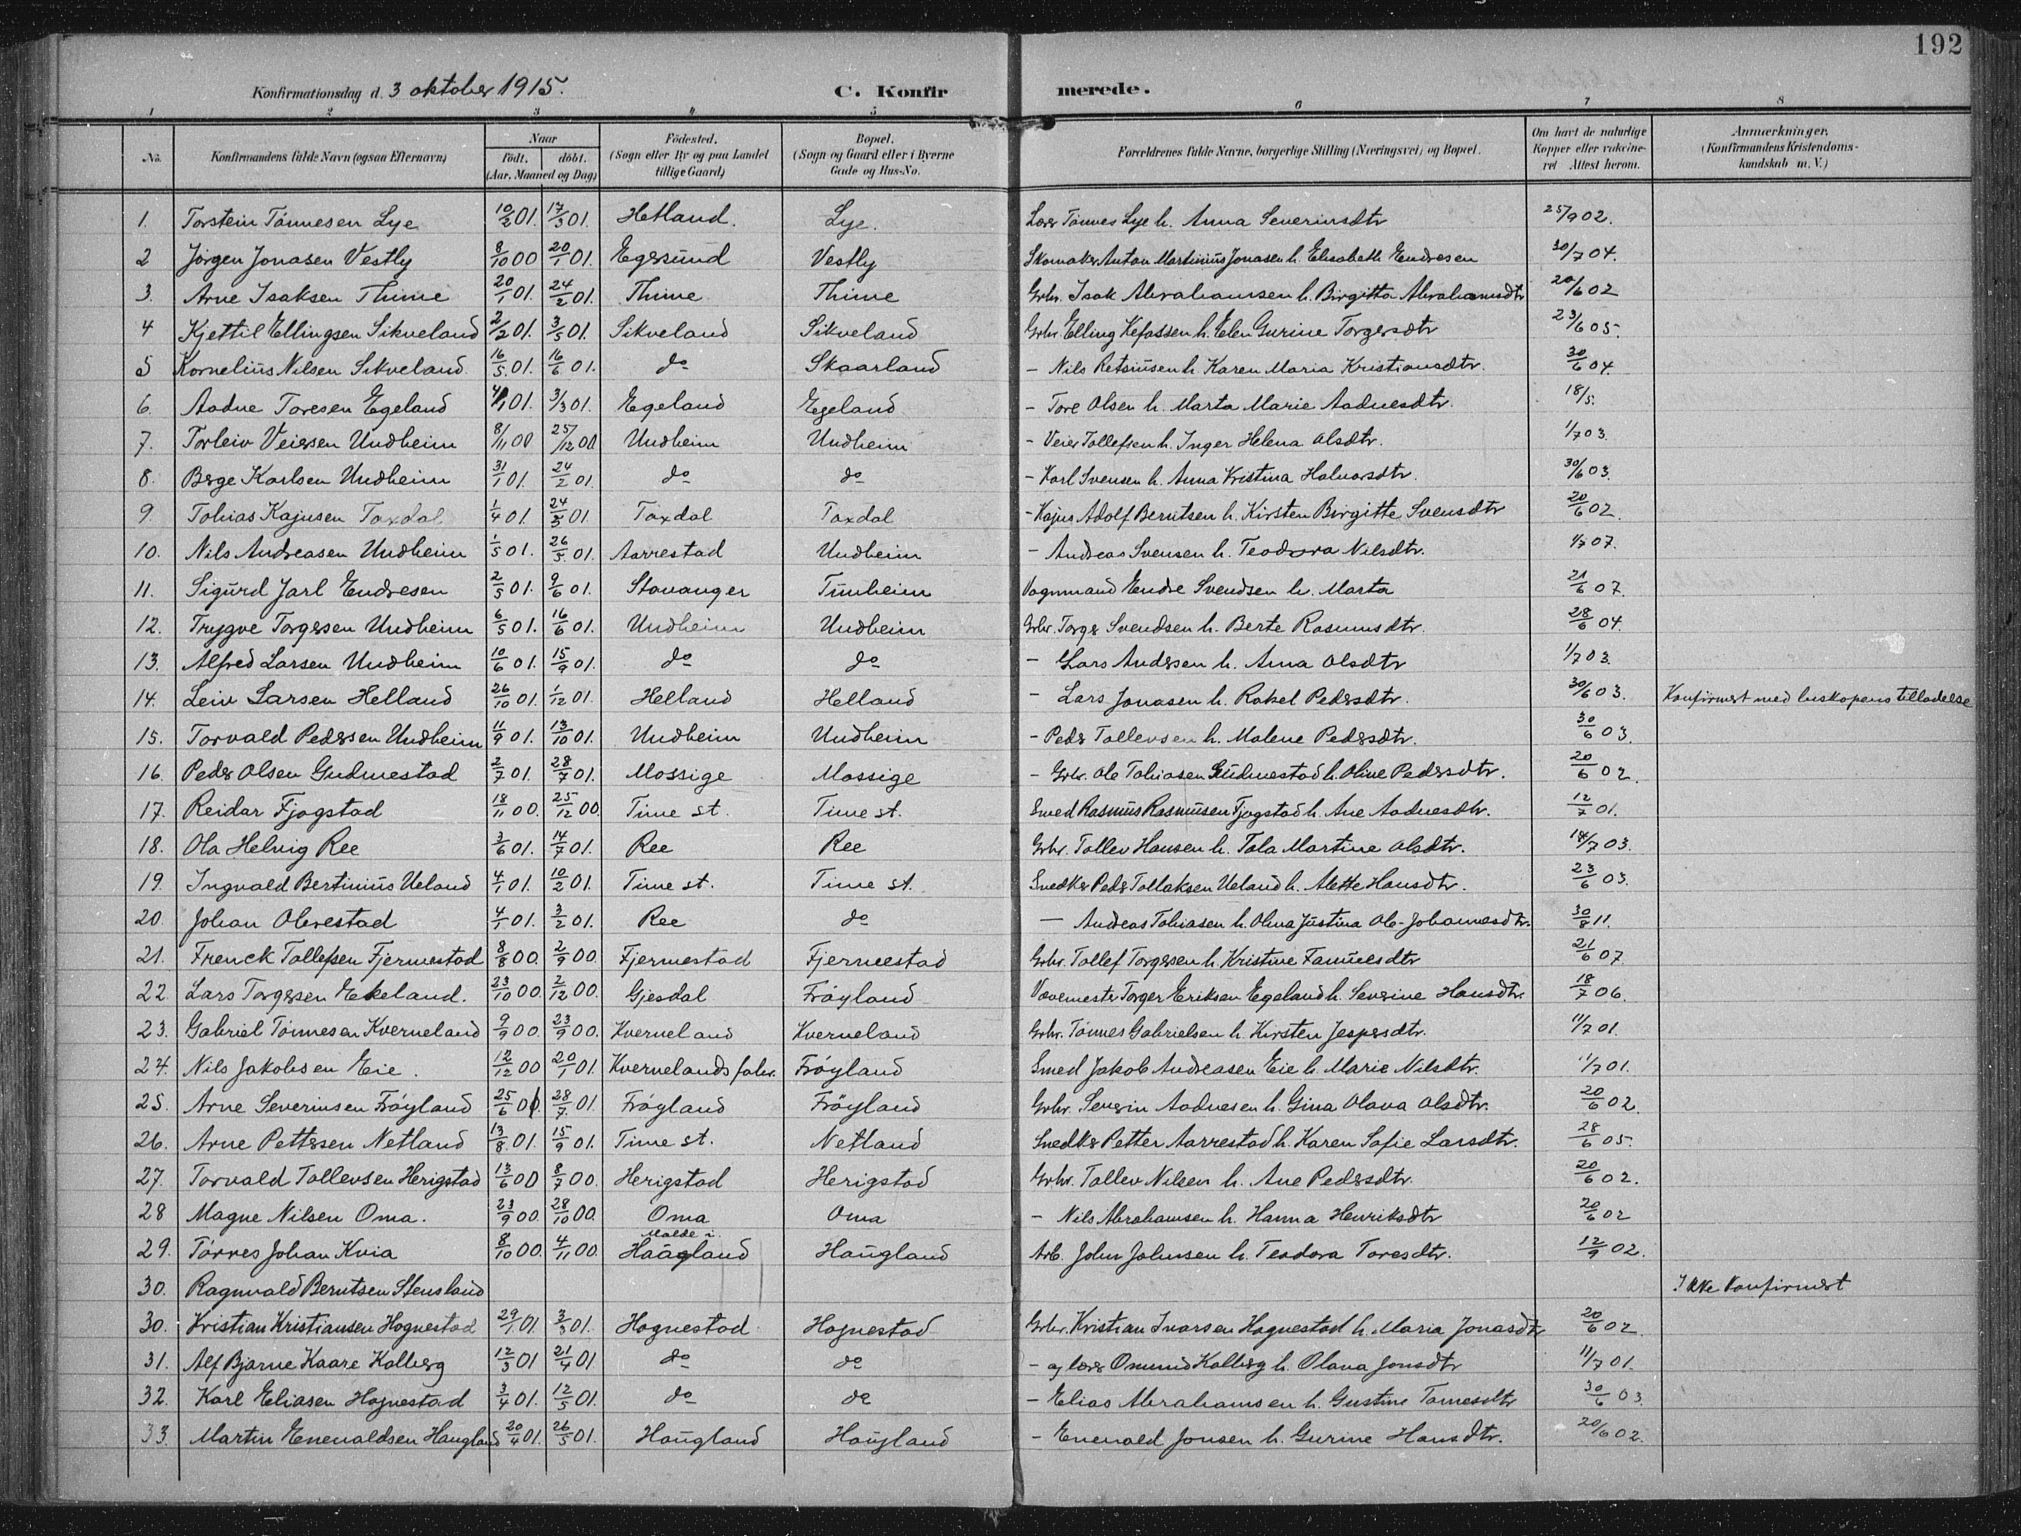 192
Konfirmationsdag d. 3 oktober 1915. C. Konfir merede.
1 2 3 4 5 6 7 8
No. Konfirmandens fulde Navn (ogsaa Efternavn) Naar født. døbt. (Aar, Maaned og Dag) Födested. (Sogn eller By og paa Landet tillige Gaard) Bopæl. (Sogn og Gaard eller i Byerne Gade og Hus-No. Forældrenes fulde Navne, borgerlige Stilling (Næringsvei) og Bopæl. Om havt de naturlige Kopper eller vakcineret Attest herom. Anmærkninger. (Konfirmandens Kristendomskundskab m. V.)
1. Torstein Tønnesen Lye 10/2 01. 17/3 01. Hetland. Lye. Lærer Tønnes Lye h. Anna Severinsdtr 25/9 02.
2 Jørgen Jonasen Vestly 8/10 00 20/1 01. Egersund Vestly Skomaker Anton Martinius Jonasen h. Elisabeth Endresen 30/7 04.
3. Arne Isaksen Thime 20/1 01. 24/2 01. Thime Thime Grbr. Isak Abrahamsen h. Birgitta Abrahamsdtr 20/6 02
4 Kjettil Ellingsen Sikveland 2/2 01. 3/5 01. Sikveland Sikveland Grbr. Elling Kefassen h. Elen Gurine Torgersdtr 23/6 05.
5 Kornelius Nilsen Sikveland 16/5 01. 16/6 01. do Skaarland - Nils Retsiusen h. Karen Maria Kristiansdtr. 30/6 04.
6. Aadne Toresen Egeland 4/1 01. 3/3 01. Egeland Egeland - Tore Olsen h. Marta Marie Aadnesdtr. 18/5.
7. Torleiv Veiersen Undheim 8/11 00 25/12 00 Undheim Undheim - Veier Tollefsen h. Inger Helena Olsdtr. 1/7 03.
8. Berge Karlsen Undheim 31/1 01. 24/2 01. do do - Karl Svensen h. Anna Kristina Halvorsdtr. 30/6 03.
9. Tobias Kajusen Taxdal 1/4 01. 24/3 01. Taxdal Taxdal - Kajus Adolf Berntsen h. Kirsten Birgitte Svensdtr 20/6 02.
10. Nils Andreasen Undheim 1/5 01. 26/5. 01. Aarrestad Undheim - Andreas Svensen h. Teodora Nilsdtr. 1/7 07.
11. Sigurd Jarl Endresen 2/5 01. 9/6 01. Stavanger Tunheim Vognmand Endre Svendsen h. Marta 21/6 07.
12. Trygve Torgersen Undheim 6/5 01. 16/6 01. Undheim Undheim Grbr. Torger Svendsen h. Berte Rasmusdtr. 28/6 04.
13. Alfred Larsen Undheim 10/6 01. 15/9 01. do do - Lars Andersen h. Anna Olsdtr 1/7 03.
14. Leiv Larsen Helland 26/10 01. 1/12 01. Helland Helland - Lars Jonasen h. Rakel Pedersdtr. 30/6 03. Konfirmert med biskopens tilladelse
15. Torvald Pedersen Undheim 11/9 01. 13/10 01. Undheim Undheim - Peder Tollevsen h. Malene Pedersdtr. 30/6 03.
16. Peder Olsen Gudmestad 2/7 01. 28/7 01. Mossige Mossige - Grbr. Ole Tobiasen Gudmestad h. Oline Pedersdtr. 20/6 02.
17. Reidar Fjogstad 18/11 00. 25/12 00. Time st. Time st. Smed Rasmus Rasmusen Fjogstad h. Ane Aadnesdtr. 12/7 01.
18. Ola Helvig Ree 3/6 01. 14/7 01. Ree Ree Grbr. Tollev Hansen h. Tala Martine Olsdtr. 14/7 03.
19. Ingvald Bertinius Ueland 4/1 01. 10/2 01. Time st. Time st. Snedker Peder Tollaksen Ueland h. Alette Hansdtr. 23/6 03.
20. Johan Obrestad 4/1 01. 3/2 01. Ree do — Andreas Tobiasen h. Olina Justina Ole-Johannesdtr. 30/8 11.
21. Frenck Tollefsen Fjermestad 8/8 00. 2/9 00. Fjermestad Fjermestad Grbr. Tollef Torgersen h. Kristine 21/6 07
22. Lars Torgersen Ekeland. 23/10 00. 2/12 00. Gjesdal Frøyland Vævemester Torger Eriksen Egeland h. Severine Hansdtr. 18/7 06.
23. Gabriel Tønnesen Kverneland 9/9 00. 23/9 00. Kverneland Kverneland Grbr. Tønnes Gabrielsen h. Kirsten Jespersdtr. 11/7 01.
24. Nils Jakobsen Eie. 12/12 00 20/1 01. Kvernelands fabr. Frøyland Smed Jakob Andreasen Eie h. Marie Nilsdtr. 11/7 01.
25. Arne Severinsen Frøyland 25/6 01. 28/7 01. Frøyland Frøyland Grbr. Severin Aadnesen h. Gina Olava Olsdtr. 20/6 02.
26. Arne Pettersen Netland 13/8. 01. 15/9 01. Time st. Netland Snedker Petter Aarrestad h. Karen Sofie Larsdtr. 28/6 05.
27. Torvald Tollevsen Herigstad 13/6 00 8/7 00. Herigstad Herigstad Grbr. Tollev Nilsen h. Ane Pedersdtr. 20/6 02.
28 Magne Nilsen Oma. 23/9 00. 28/10 00. Oma Oma - Nils Abrahamsen h. Hanna Henriksdtr 20/6 02
29. Tørres Johan Kvia 8/10 00. 4/11 00. Malde i. Haagland Haugland Arb. John Johnsen h. Teodora Toresdtr. 12/9 02.
30. Ragnvald Berntsen Stensland Ikke konfirmert
30. Kristian Kristiansen Hognestad 29/1 01. 3/3 01. Hognestad Hognestad Grbr. Kristian Ivarsen Hognestad h. Maria Jonasdtr 20/6 02.
31. Alf Bjarne Kaare Kolberg 12/3 01 21/4 01 do do - og lærer Omund Kolberg h. Olava Jonsdtr 11/7 01.
32. Karl Eliasen Hognestad 3/4 01. 12/5 01. do do - Elias Abrahamsen h. Gustine Tønnesdtr 30/6 03.
33. Martin Enevaldsen Haugland 20/4 01. 26/5 01. Haugland Haugland - Enevald Jonsen h. Gurine Hansdtr. 20/6 02.